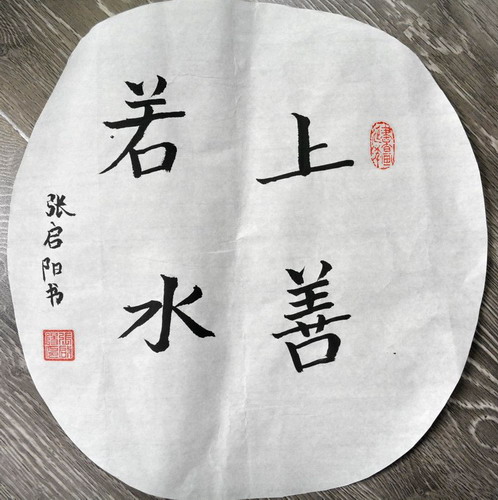 上善
若水
张启阳书